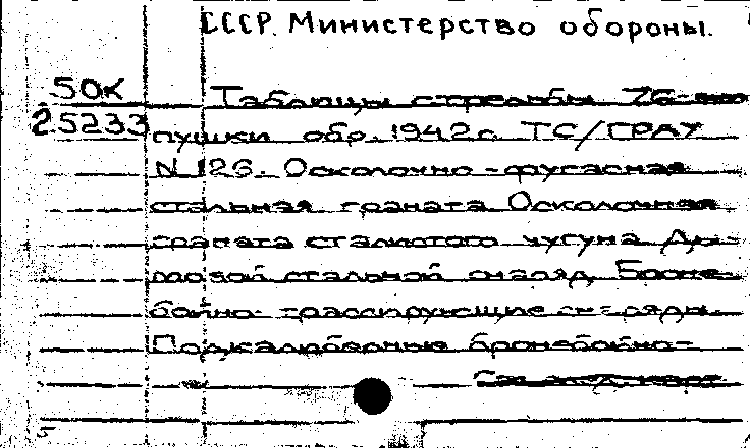 СССР. Министерство обороны.
50к Таблицы стрельбы 76-мм
25233 пушки обр. 1942г. ТС/ГРАУ
N 126. Осколочно-фугасная
стальная граната Осколочная
граната сталистого чугуна Ды-
мовой стальной снаряд Броне-
бойно-трассирующие снаряды.
Подкалиберные бронебойно-
См. след. карт.